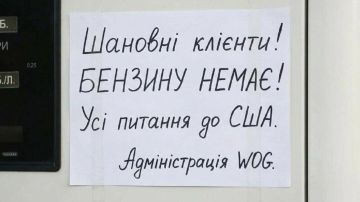 Б.
РИ
0.25
Б./Л.
Шановні клієнти!
БЕНЗИНУ НЕМАЄ!
Усі питання до США.
Адміністрація WOG.